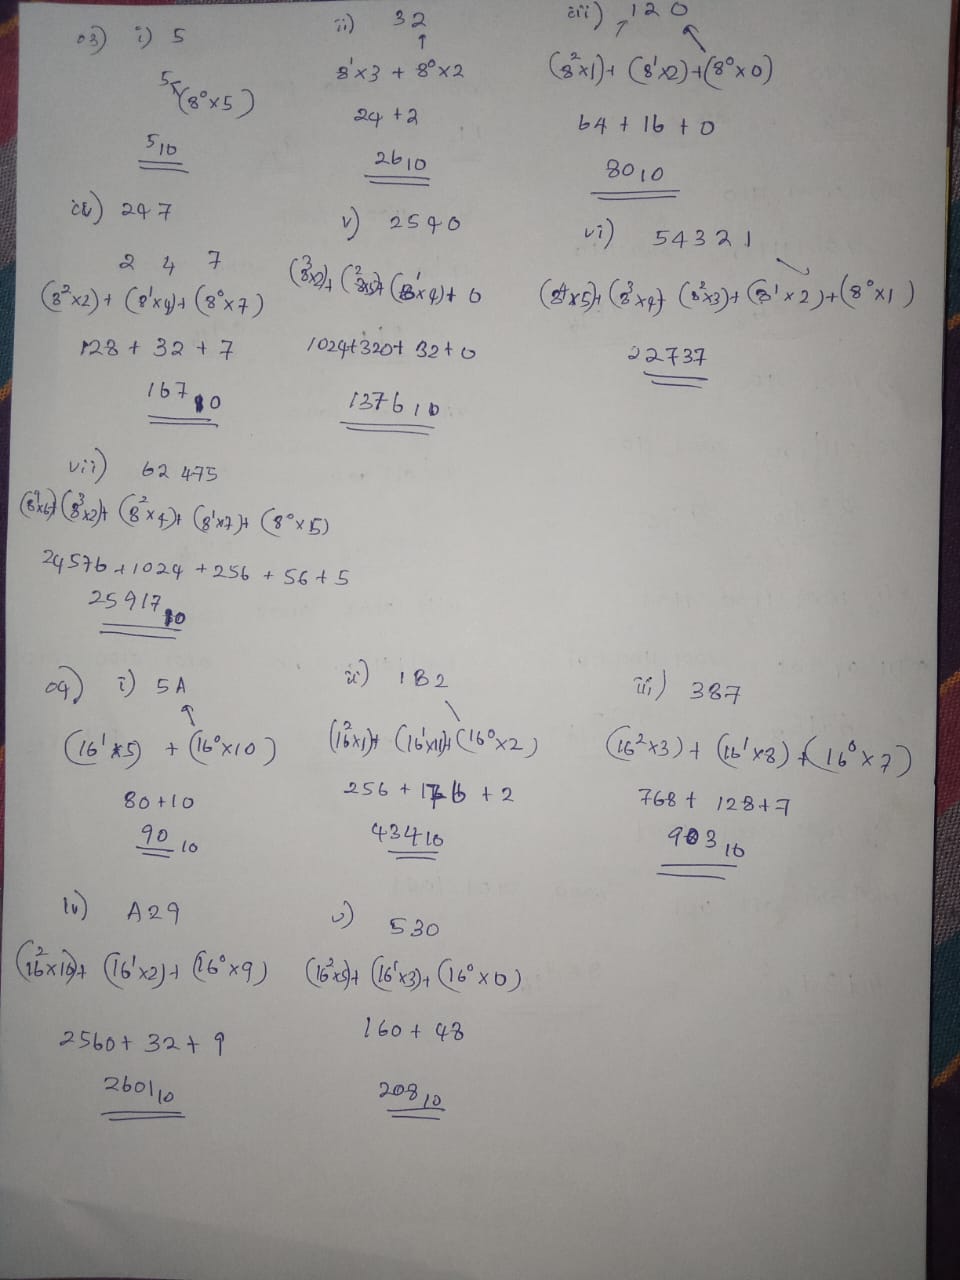 03) i) 5
5 (8⁰×5)
5₁₀
ii) 32
8¹×3 + 8⁰×2
24 +2
26₁₀
iii) 120
(8²×1)+ (8¹×2)+(8⁰×0)
64 + 16 + 0
80₁₀
iv) 247
2 4 7
(8²×2)+ (8¹×4)+ (8⁰×7)
128 + 32 + 7
167₁₀
v) 2540
(8³×2)+ (8²×5)+ (8¹×4)+ 0
1024+320+ 32+0
1376₁₀
vi) 54321
(8⁴×5)+ (8³×4)+ (8²×3)+ (8¹×2)+(8⁰×1)
22737
vii) 62475
(8⁴×6)+(8³×2)+ (8²×4)+ (8¹×7)+ (8⁰×5)
24576+1024 +256 + 56+5
25917₁₀
04) i) 5A
(16¹×5) + (16⁰×10)
80+10
90₁₀
ii) 1B2
(16²×1)+ (16¹×11)+(16⁰×2)
256 + 176 + 2
434₁₀
iii) 387
(16²×3)+ (16¹×8)+(16⁰×7)
768+ 128+7
903₁₀
iv) A29
(16²×10)+ (16¹×2)+ (16⁰×9)
2560+ 32+ 9
2601₁₀
v) 530
(16²×5)+ (16¹×3)+ (16⁰×0)
160+ 48
208₁₀